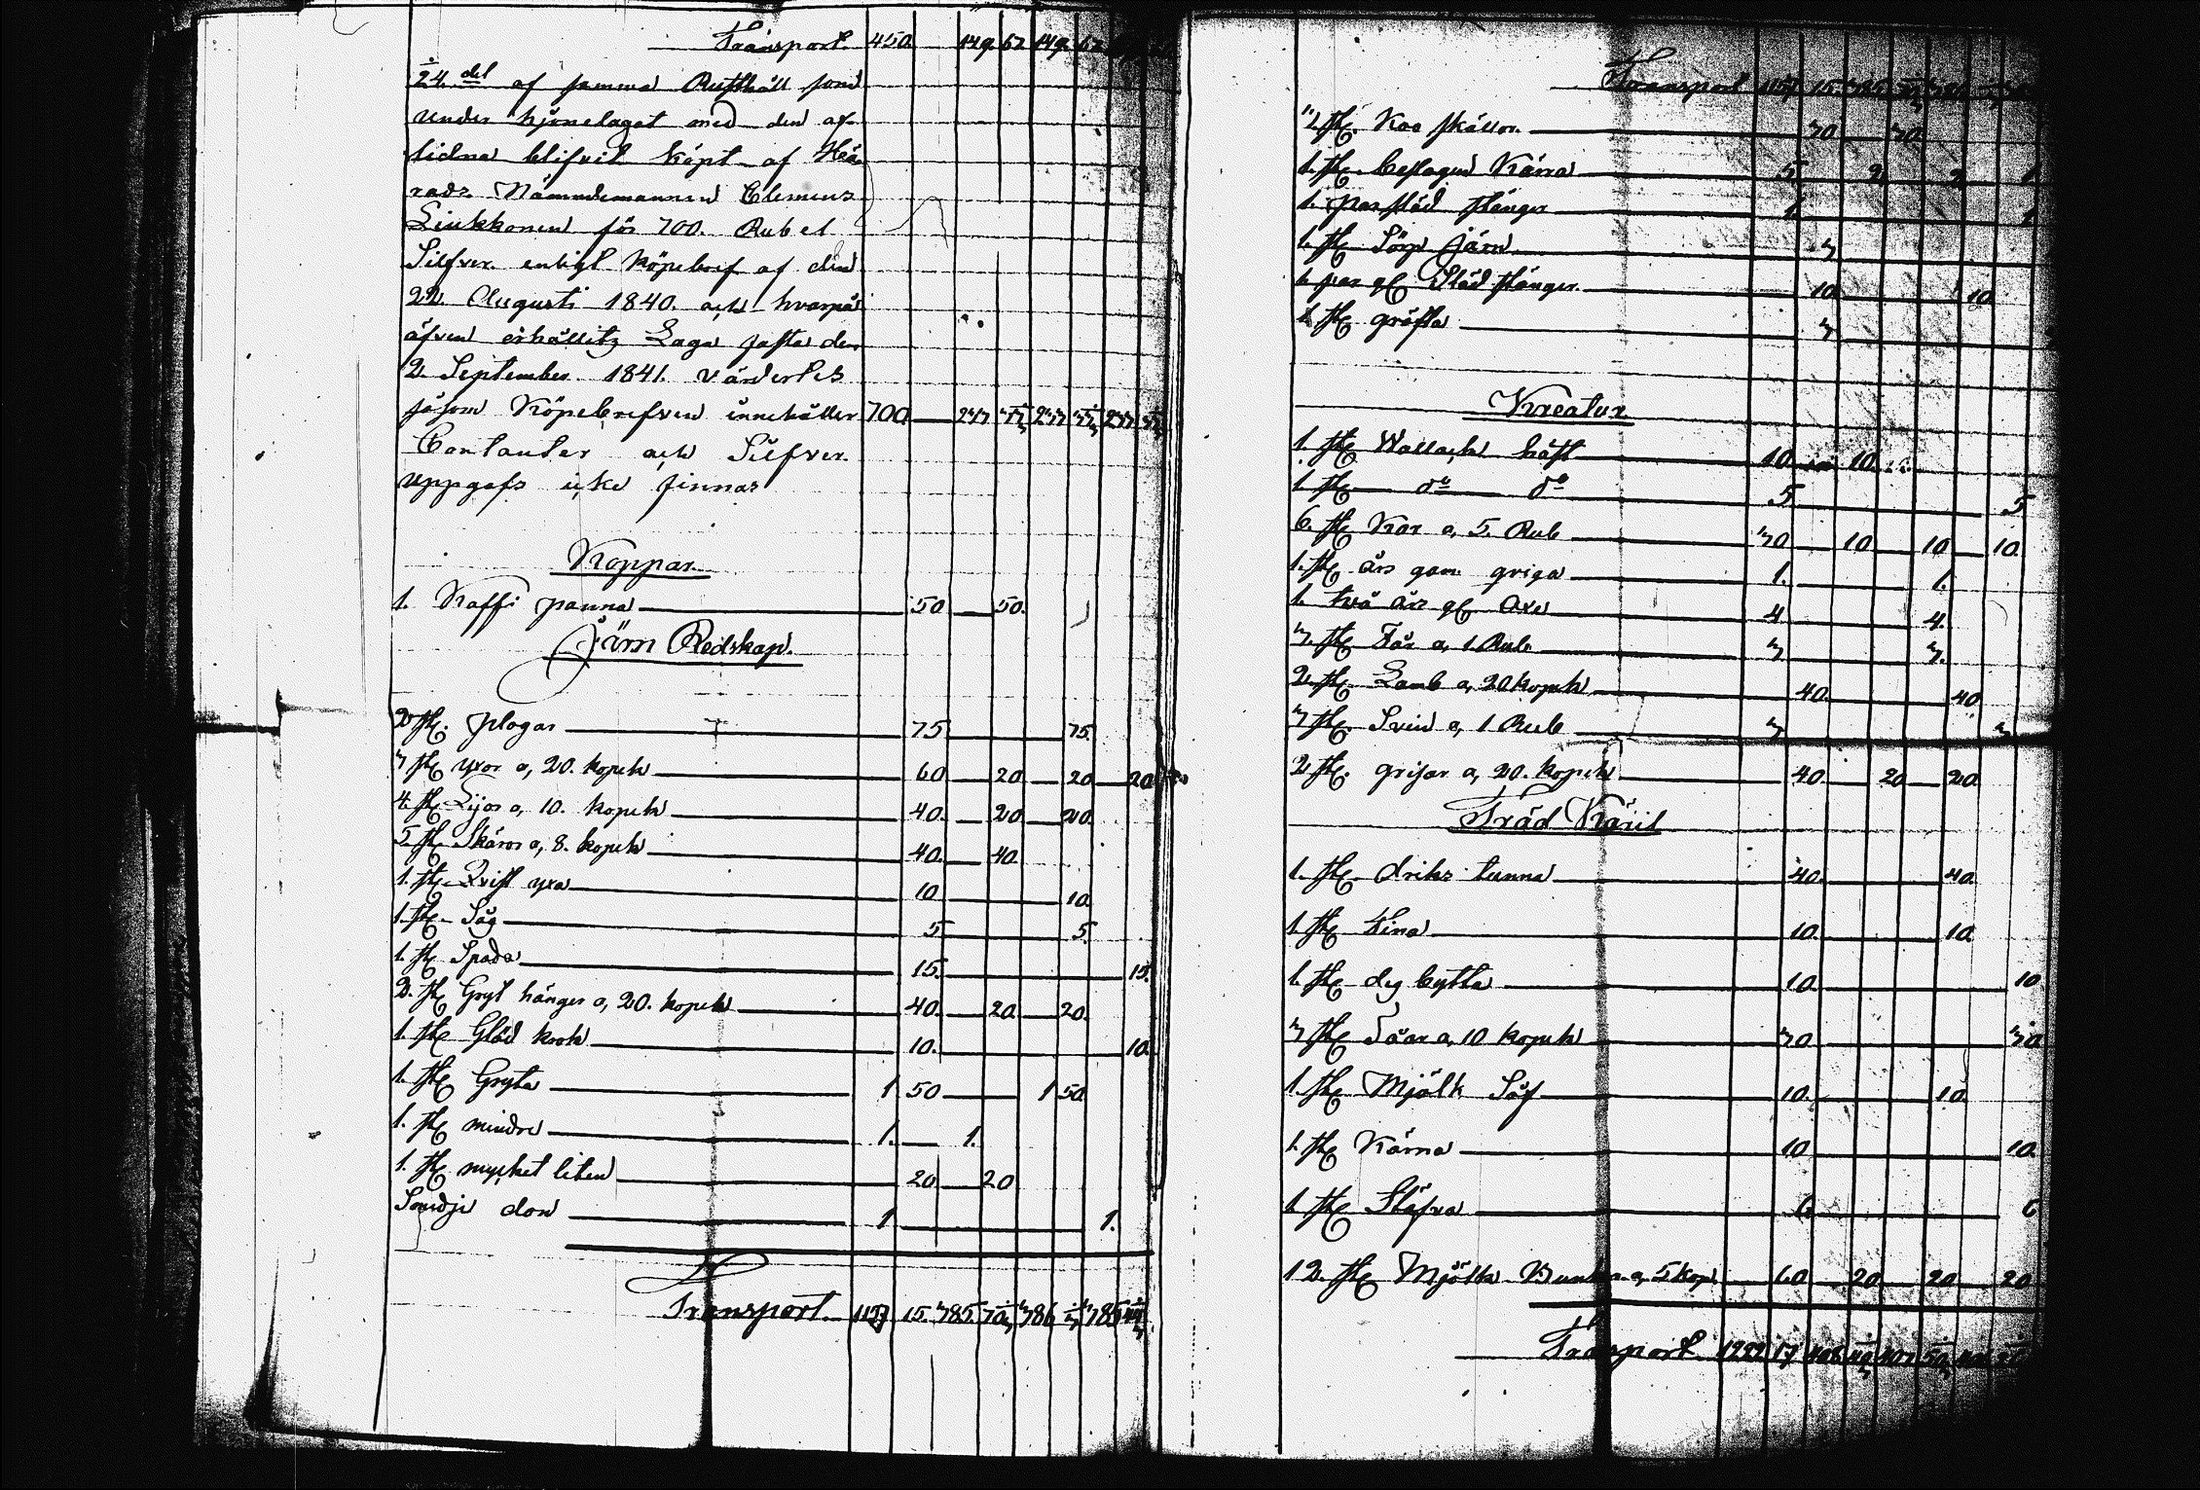 Transport. 450. 149 67 149 67
24. del af samma Rusthåll som
under hjonelaget med den af-
lidna blifvit köpt af Hä-
rads Nämndemannen Clemens
Liukkonen för 700. Rubel
Silfver enligt köpebref af den
22 Augusti 1840. och hvarpå
äfven erhållits Laga fasta den
2. September 1841. värderles
såsom Köpebrefven innehåller 700
Contanter och Silfver
uppgafs icke finnas
Koppar
1. Kaffi panna 50 50.
Järn Redskap.
2 st. plogar 75 75.
3 st. yxor a, 20. kopek 60 20 20 20
4. st. Lijor a, 10. kopek 40. 20 20.
5. st. Skäror a, 8. kopek 40. 40.
1. st. Qvist yxa 10 10.
1. st. Såg 5 5.
1. st. Spada 15. 15.
2. st. Gryt hänger a, 20. kopek 40. 20 20.
1. st. Glöd krok 10. 10.
1. st. Gryta 1 50 1 50
1. st. mindre 1. 1.
1. st. mycket liten 20 20
Smidje don 1 1.
Transport 1157 15. 385. 386 385
Transport 1157 15. 385
st. Koo skällor. 30 30.
1. st. beslagen Kärra 5 2 2 1
1. par släd stänger 1. 1
1. st. Sörp järn 3
1 par gl Släd stänger 10 10
1 st. gräfta 3
Kreatur
1. st. Wallack häst 10 10
1. st. do do 5 5
6. st. Kor a, 5. Rub 30 10 10 10
1. st. års gam qviga 1. 1.
1. två års gl Oxe 4 4.
3. st. Får a, 1 Rub 3 3.
2. st. Lamb a, 20 kopek 40. 40
3 st. Svin a, 1 Rub 3 3
2 st. grisar a, 20. kopek 40. 20 20
Träd Käril
1. st. driks tunna 40. 40.
1 st. Tina 10. 10.
1. st. deg bytta 10. 10
3 st. Såar a, 10 kopek 30 30
1. st. Mjölk Såf 10. 10.
1. st. Kärna 10 10.
1 st. Stäfva 6 6
12. st. Mjölk Bunkar a, 5 kop. 60 20 20 20
Transport 1222 17 408 407